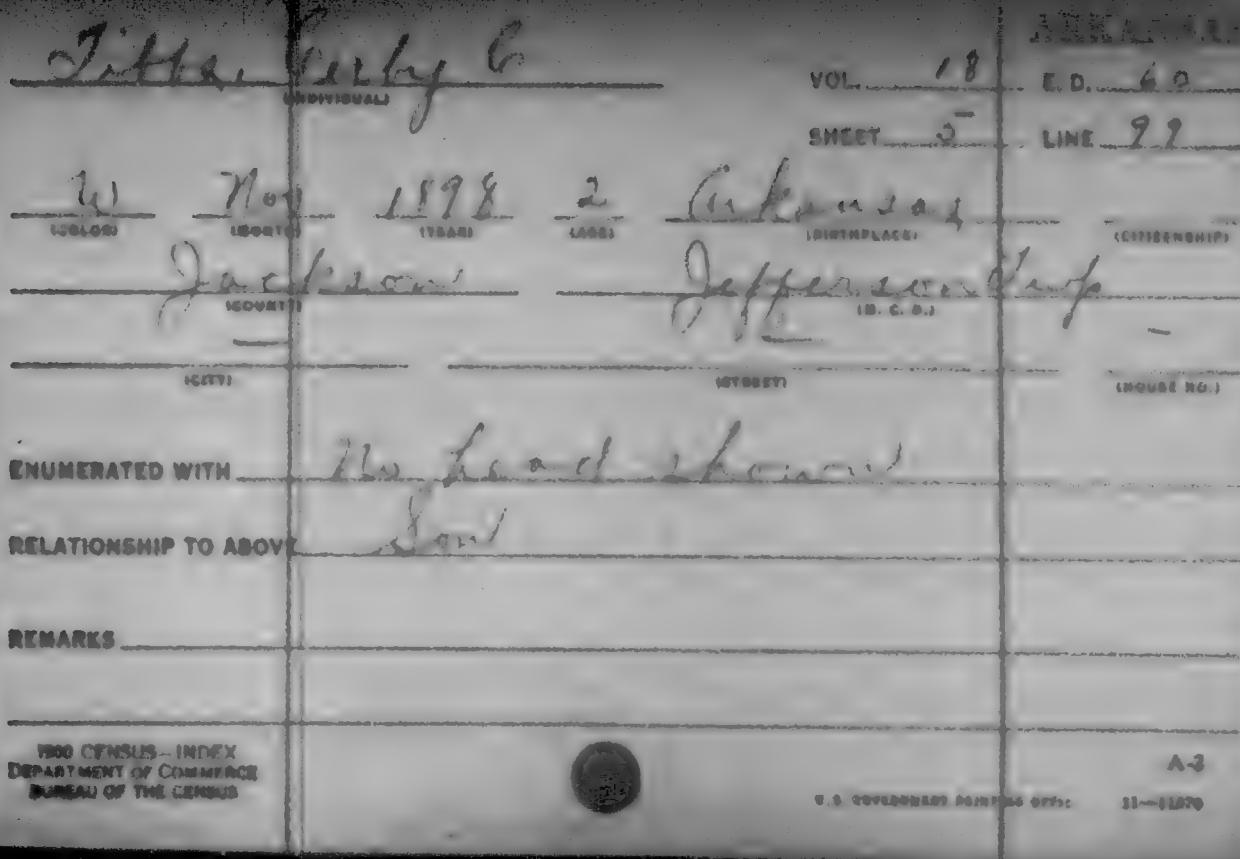 ARKANSAS
C
(INDIVIDUAL)
VOL. 18 E. D. 60
SHEET 5 LINE 99
W Nov 1898 2 Arkansas
(COLOR) (MONTH) (YEAR) (AGE) (BIRTHPLACE) (CITIZENSHIP)
Jackson Jefferson Twp
(COUNTY) (M. C. D.)
— — —
(CITY) (STREET) (HOUSE NO.)
ENUMERATED WITH No head shown
RELATIONSHIP TO ABOVE Son
REMARKS
1900 CENSUS—INDEX
DEPARTMENT OF COMMERCE
BUREAU OF THE CENSUS
A-3
U.S. GOVERNMENT PRINTING OFFICE